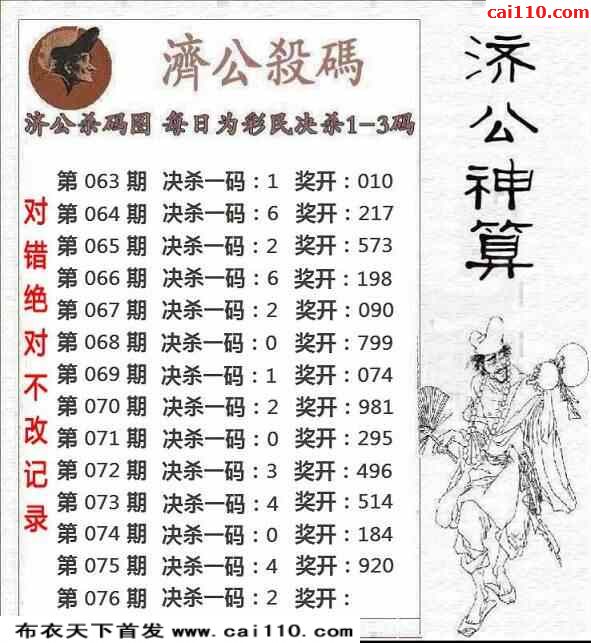 cai110.com
濟公殺碼
济公杀码图 每日为彩民决杀1-3码
第 063 期 决杀一码：1 奖开：010
第 064 期 决杀一码：6 奖开：217
第 065 期 决杀一码：2 奖开：573
第 066 期 决杀一码：6 奖开：198
第 067 期 决杀一码：2 奖开：090
第 068 期 决杀一码：0 奖开：799
第 069 期 决杀一码：1 奖开：074
第 070 期 决杀一码：2 奖开：981
第 071 期 决杀一码：0 奖开：295
第 072 期 决杀一码：3 奖开：496
第 073 期 决杀一码：4 奖开：514
第 074 期 决杀一码：0 奖开：184
第 075 期 决杀一码：4 奖开：920
第 076 期 决杀一码：2 奖开：
对错绝对不改记录
济公神算
布衣天下首发 www.cai110.com